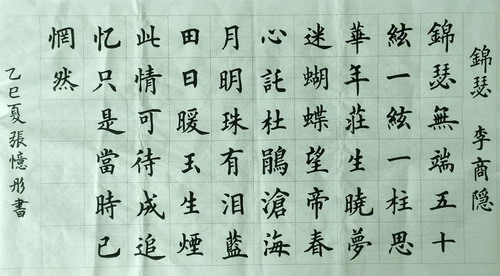 錦瑟 李商隐
錦瑟無端五十
絃一絃一柱思
華年莊生曉夢
迷蝴蝶望帝春
心託杜鵑滄海
月明珠有泪藍
田日暖玉生煙
此情可待成追
忆只是當時已
惘然
乙巳夏張憶彤書